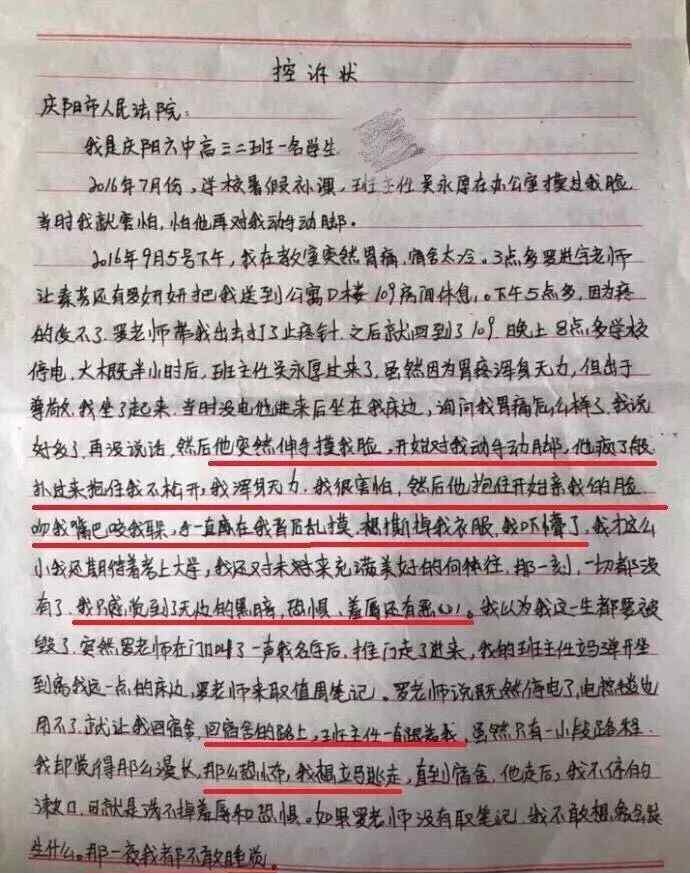 控诉状
庆阳市人民法院:
我是庆阳六中高三二班一名学生
2016年7月份,学校暑假补课,班主任吴永厚在办公室摸过我脸
当时我就害怕,怕他再对我动手动脚。
2016年9月5号下午,我在教室突然胃痛,宿舍太冷。3点多罗进宇老师
让秦芳还有罗妍妍把我送到公寓D楼109房间休息。下午5点多,因为疼
的受不了.罗老师带我出去打了止疼针.之后就回到了109.晚上8点多学校
停电,大概半小时后,班主任吴永厚过来了.虽然因为胃疼浑身无力,但出于
尊敬.我坐了起来.当时没电他进来后坐在我床边,询问我胃痛怎么样了.我说
好多了.再没说话,然后他突然伸手摸我脸,开始对我动手动脚,他疯了般
扑过来抱住我不松开,我浑身无力.我很害怕,然后他抱住开始亲我的脸
吻我嘴巴咬我耳朵,手一直在我背后乱摸.想撕掉我衣服,我吓懵了,我才这么
小我还期待着考上大学,我还对未来充满美好的向往,那一刻,一切都没
有了.我只感觉到了无边的黑暗,恐惧、羞辱还有恶心。我以为我这一生都要被
毁了.突然罗老师在门口叫了一声我名字后,推门走了进来,我的班主任立马弹开坐
到离我远一点的床边,罗老师来取值周笔记。罗老师说既然停电了,电热毯也
用不了.就让我回宿舍,回宿舍的路上,班主任一直跟着我,虽然只有一小段路程.
我却觉得那么漫长,那么恐怖,我想立马逃走,直到宿舍,他走后,我不停的
漱口,可就是洗不掉羞辱和恐惧。如果罗老师没有取笔记,我不敢想象会发
生什么。那一夜我都不敢睡觉。